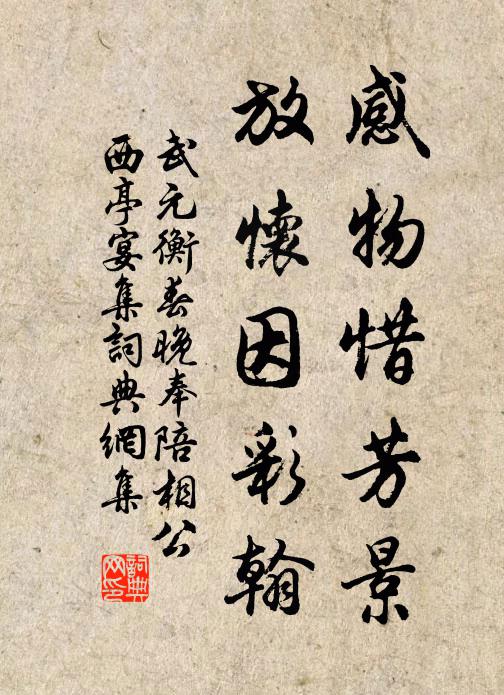 感物惜芳景
放懷因彩翰
武元衡春晚奉陪相公
西亭宴集詞典網集
詞典网印